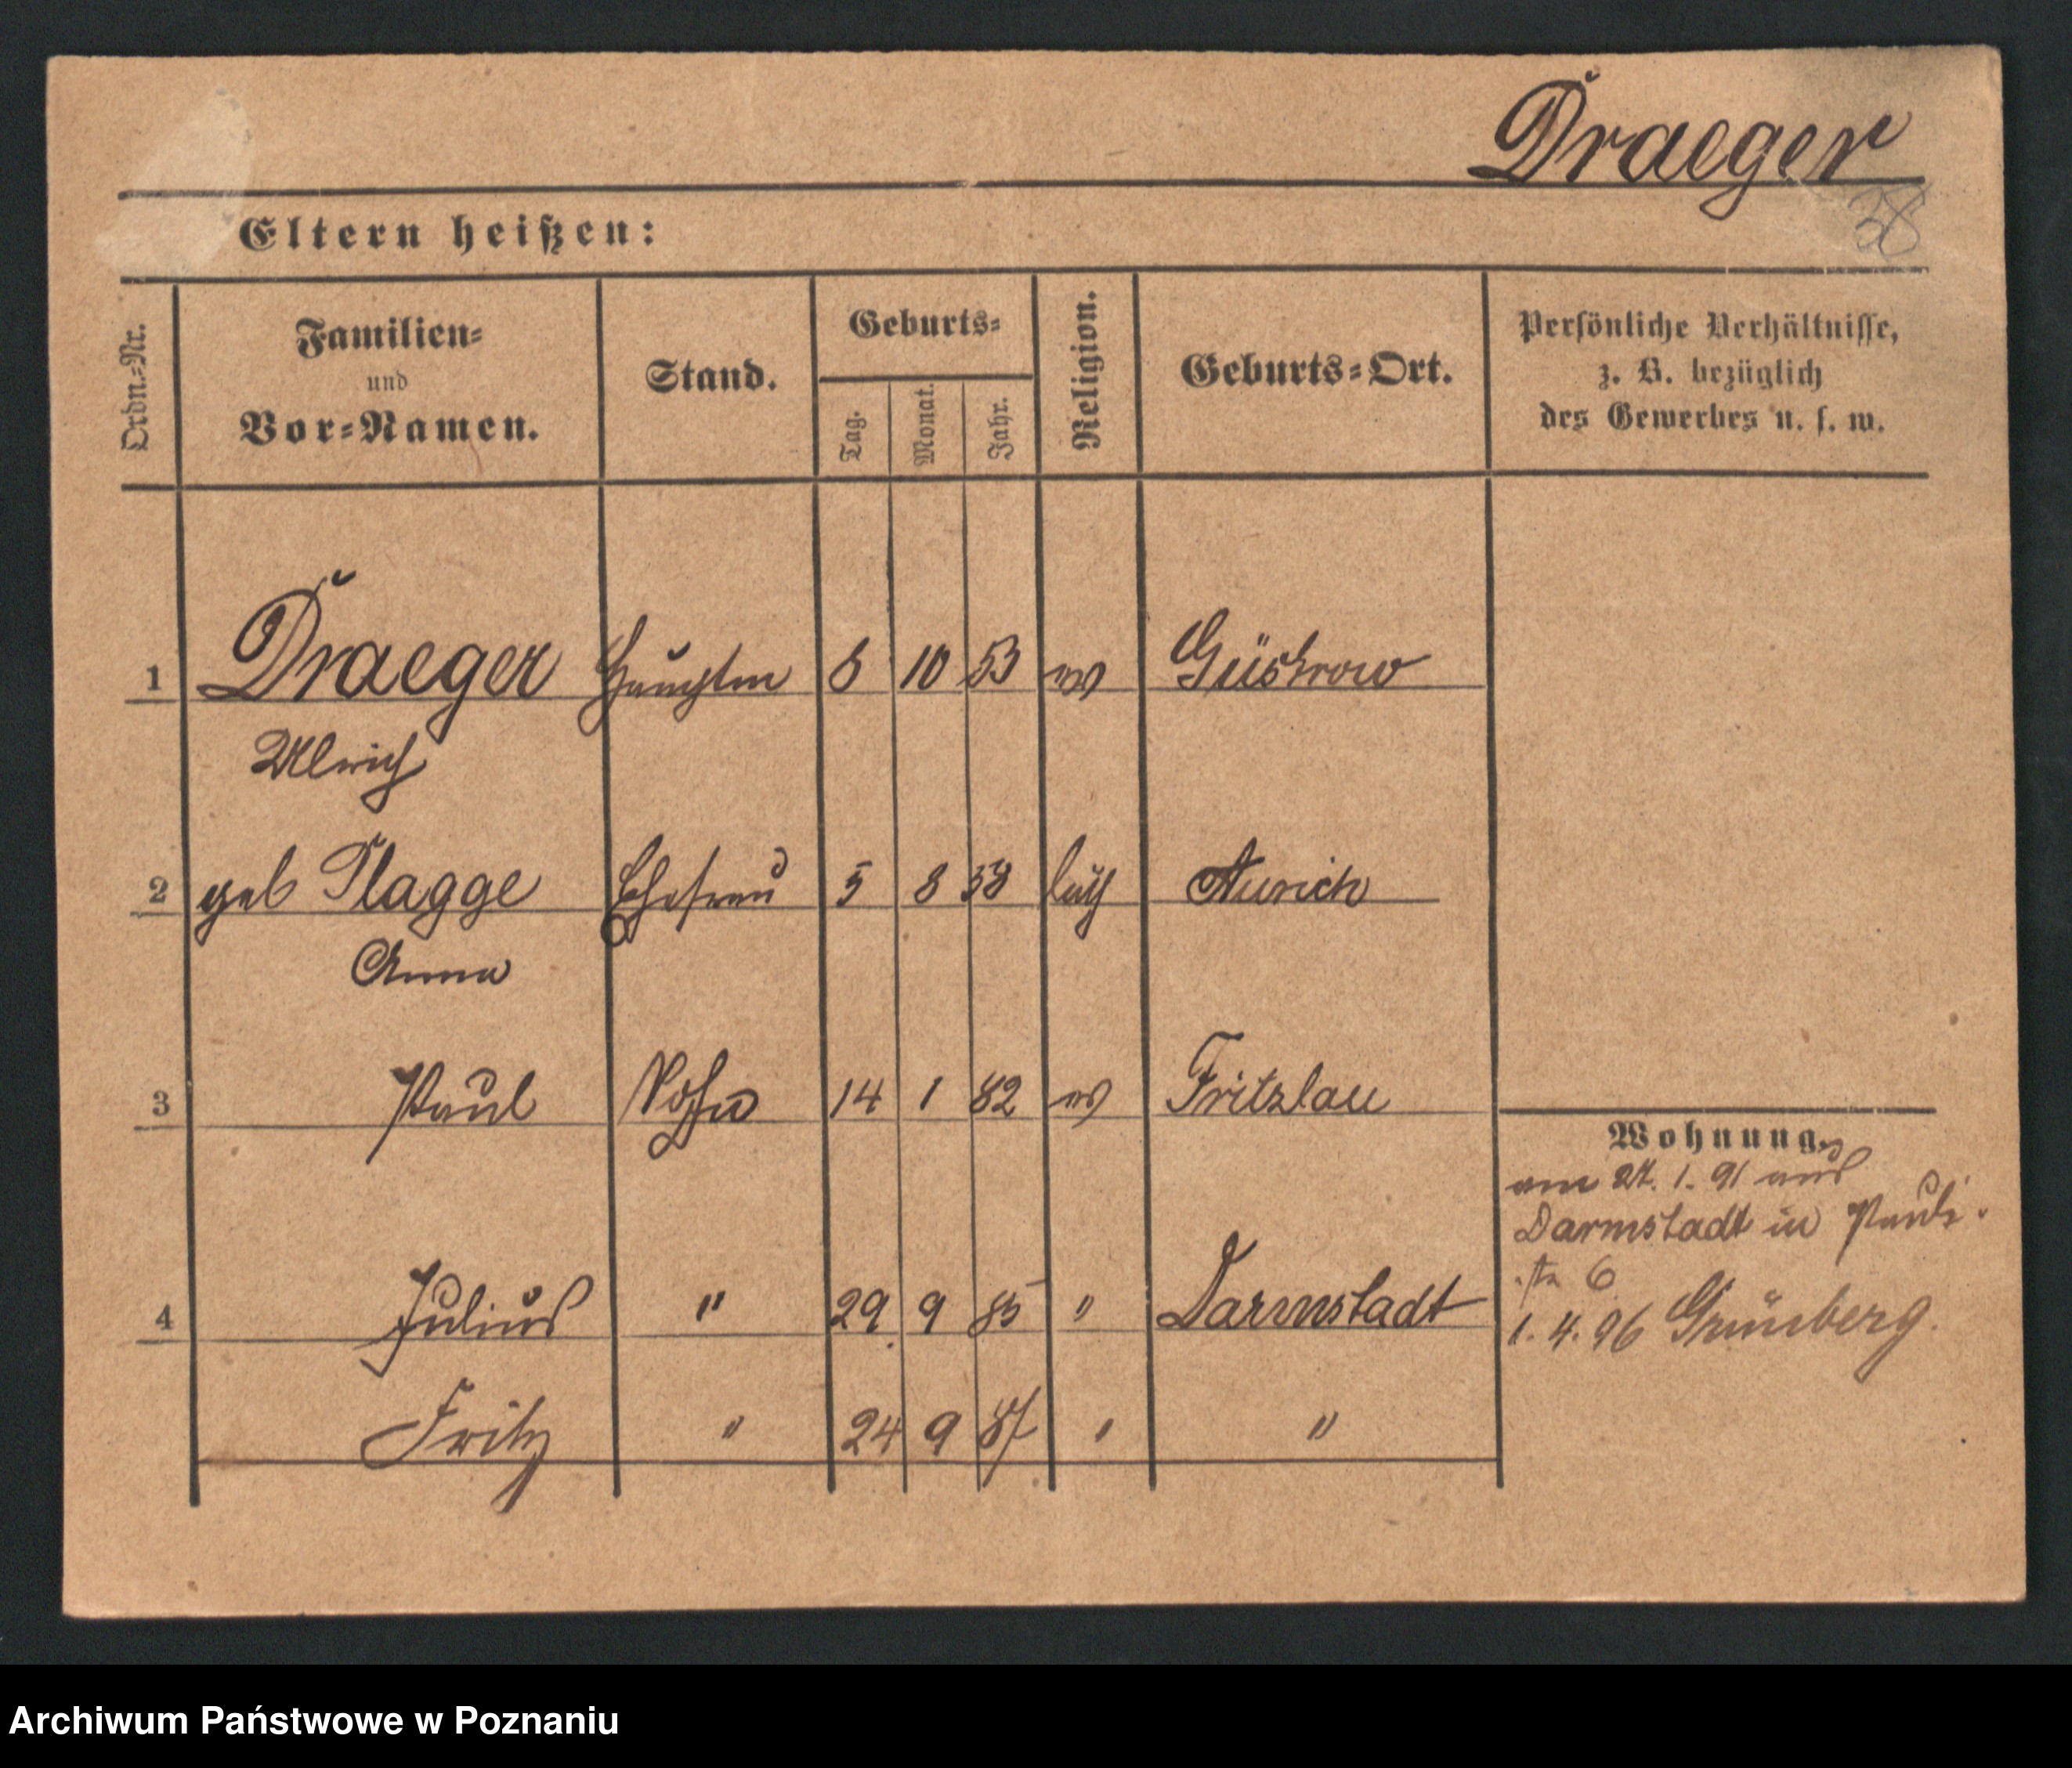 Draeger
38
Eltern heißen:
Ordn.=Nr.
Familien=
und
Vor=Namen.
Stand.
Geburts=
Tag.
Monat.
Jahr.
Religion.
Geburts=Ort.
Persönliche Verhältnisse,
z. B. bezüglich
des Gewerbes u. s. w.
1 Draeger Hauptm 8 10 53 ev Güskrow
Ulrich
2 geb Plagge Ehefrau 5 8 58 luth Aurich
Anna
3 Paul Sohn 14 1 82 ev Fritzlau
4 Julius " 29 9 85 " Darmstadt
Fritz " 24 9 87 " "
Wohnung.
am 27. 1. 91 aus
Darmstadt in Pauli-
str 6
1. 4. 96 Grünberg.
Archiwum Państwowe w Poznaniu